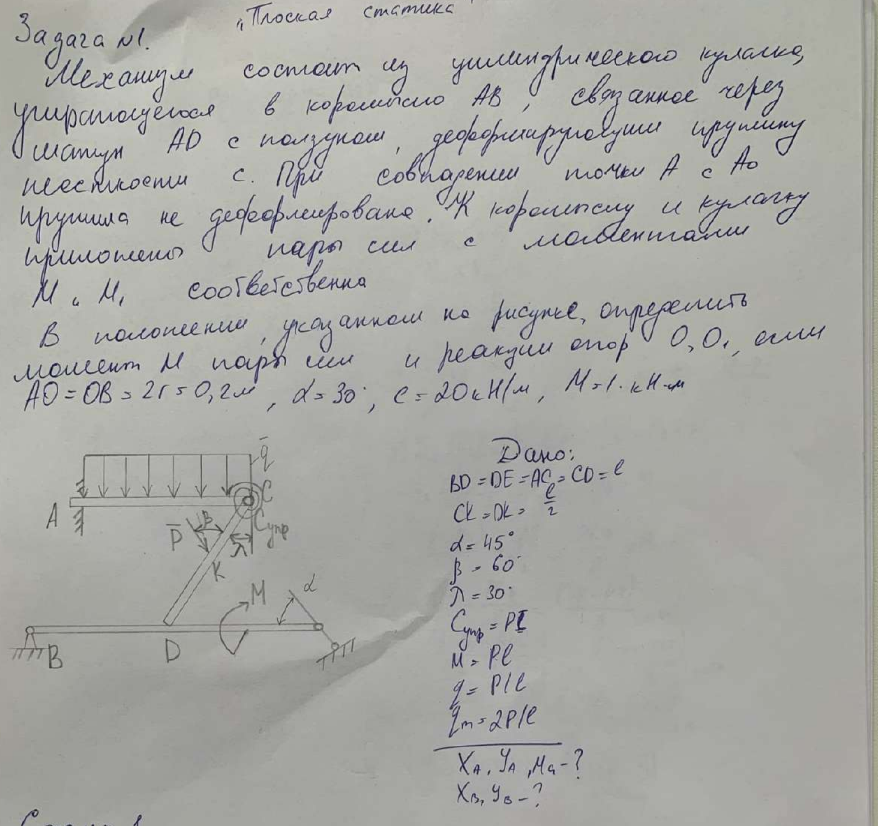 "Плоская статика"
Задача №1.
Механизм состоит из цилиндрического кулачка,
упирающегося в коромысло AB, связанное через
шатун AD с ползуном, деформирующим пружину
жесткости c. При совпадении точки A с A₀
пружина не деформирована. К коромыслу и кулачку
приложены пары сил с моментами
M и M₁ соответственна
В положении, указанном на рисунке, определить
момент M пары сил и реакции опор O, O₁, если
AO = OB = 2r = 0,2м, α = 30°, c = 20 кН/м, M = 1 кН·м
q̄
A
C
P̄
β
Cупр
λ
K
M
α
B
D
Дано:
BD = DE = AC = CD = ℓ
CK = DK = ℓ/2
α = 45°
β = 60°
λ = 30°
Cупр = Pℓ
M = Pℓ
q = P/ℓ
qm = 2P/ℓ
XA, YA, MA - ?
XB, YB - ?